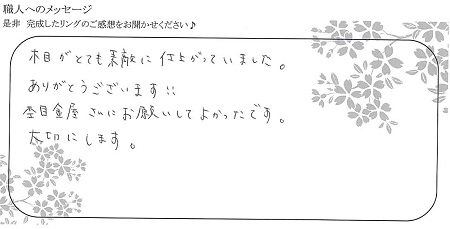 職人へのメッセージ
是非 完成したリングのご感想をお聞かせください♪
木目がとても素敵に仕上がっていました。
ありがとうございます!!
杢目金屋さんにお願いしてよかったです。
大切にします。